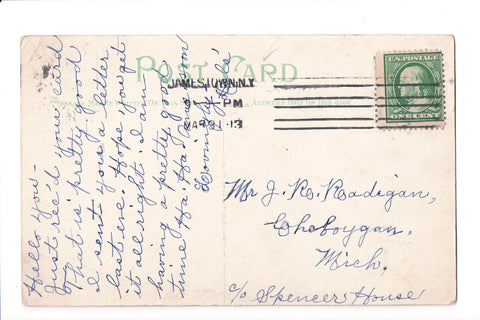 POST CARD
JAMESTOWN, N.Y.
PM
MAR 13
U.S. POSTAGE
ONE CENT
Hello you -
Just rec'd your card
That is pretty good
I sent you a letter
last eve. Hope you get
it all right. I am
having a pretty good
time Ha. Ha. Ans soon
Lovingly
Mr J. R. Radigan,
Cheboygan,
Mich.
c/o Spencer House